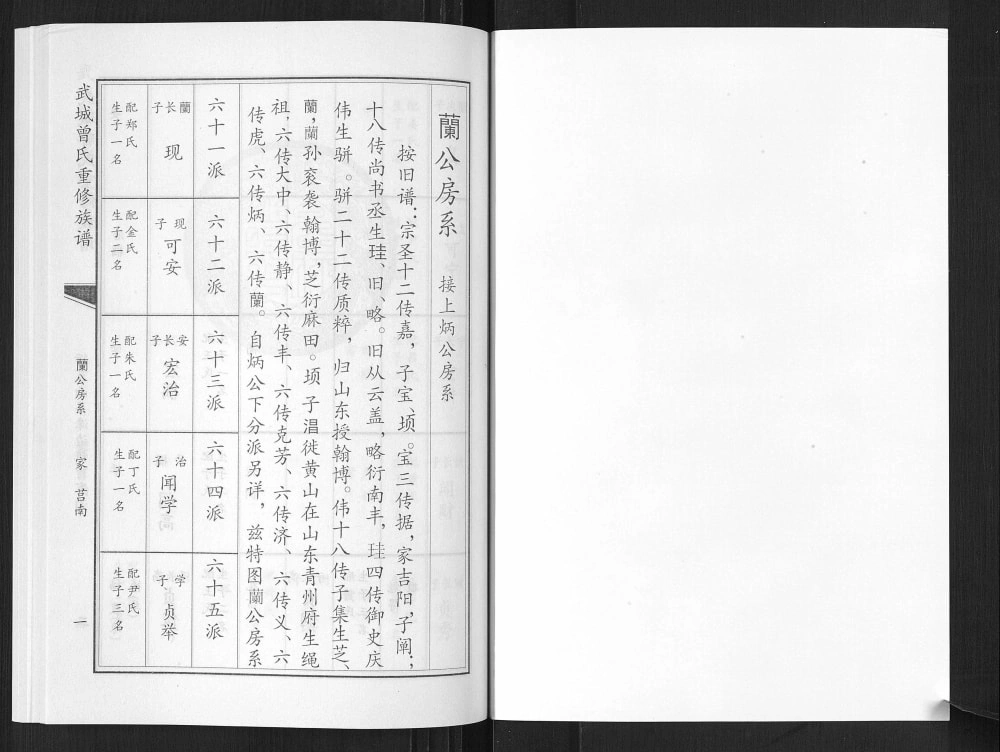 蘭公房系 接上炳公房系
按旧谱：宗圣十二传嘉，子宝、顼。宝三传据，家吉阳，子阐；
十八传尚书丞生珪、旧、略。旧从云盖，略衍南丰，珪四传御史庆
伟生骈。骈二十二传质粹，归山东授翰博。伟十八传子集生芝、
蘭，蘭孙衮袭翰博，芝衍麻田。顼子淐徙黄山在山东青州府生绳
祖，六传大中、六传静、六传丰、六传克芳、六传济、六传义、六
传虎、六传炳、六传蘭。自炳公下分派另详，兹特图蘭公房系
六十一派
蘭长子
现
配郑氏
生子一名
六十二派
现子
可安
配金氏
生子二名
六十三派
安长子
宏治
配朱氏
生子一名
六十四派
治子
闻学
配丁氏
生子一名
六十五派
学子
贞举
配尹氏
生子三名
武城曾氏重修族谱
蘭公房系 家 莒南
一